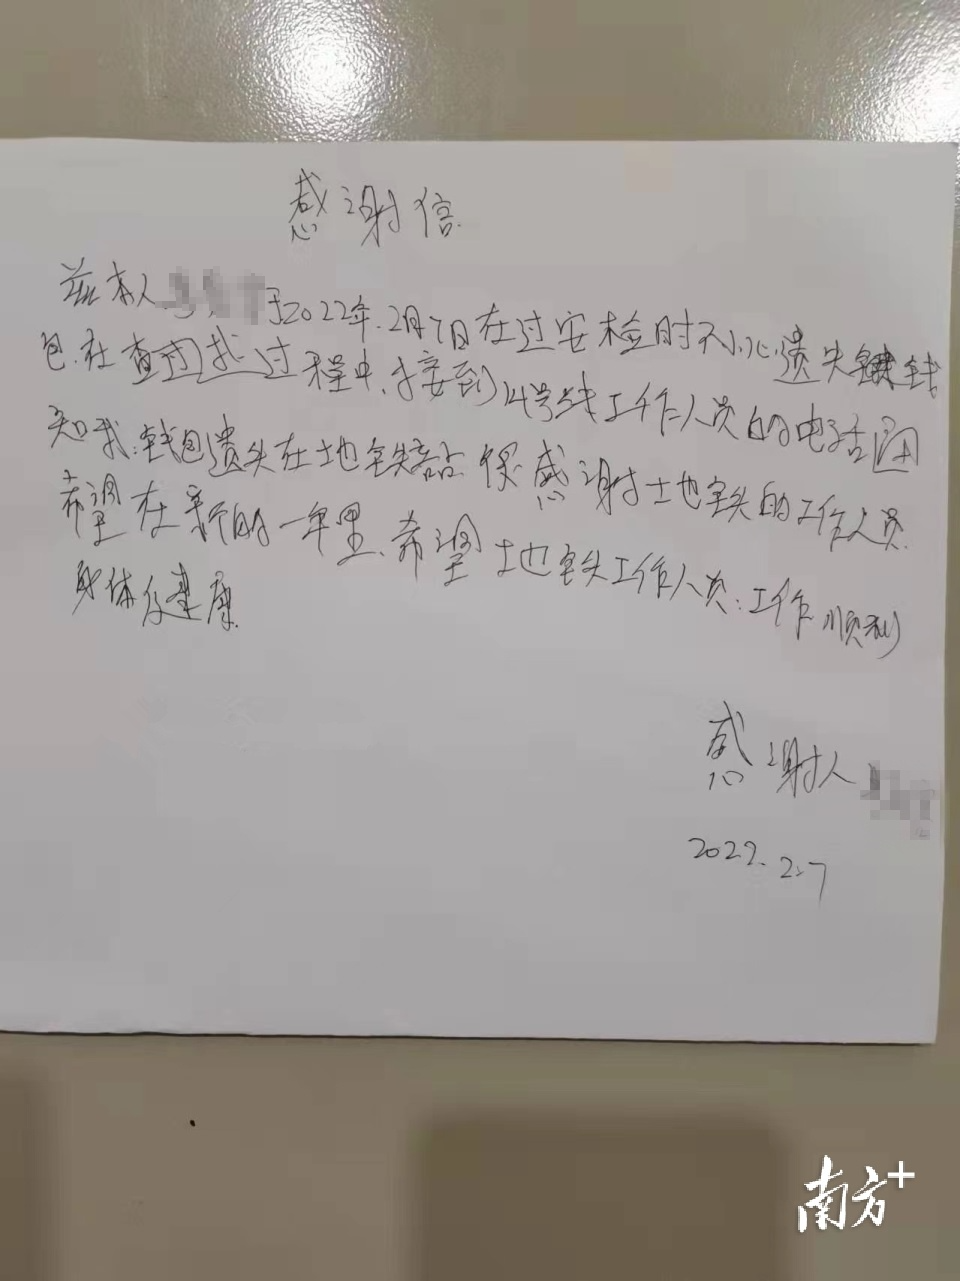 感谢信
兹本人 于2022年.2月7日在过安检时不小心遗失钱
包.在查找过程中,接到14号线工作人员的电话通
知我:钱包遗失在地铁站.很感谢地铁的工作人员.
希望在新的一年里、希望地铁工作人员:工作顺利
身体健康.
感谢人
2022.2.7
南方+